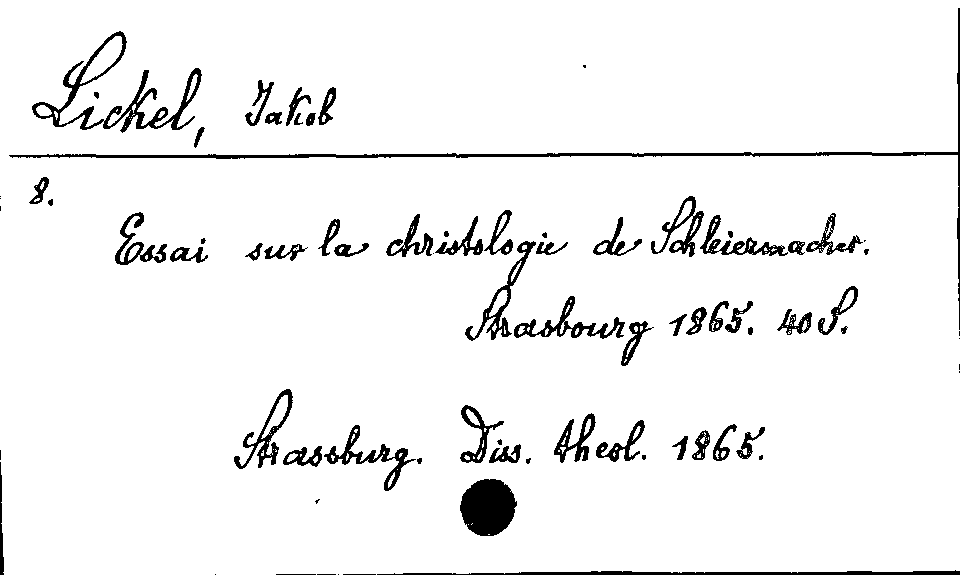 Lickel, Jakob
8.
Essai sur la christologie de Schleiermacher.
Strasbourg 1865. 40 S.
Strassburg. Diss. theol. 1865.